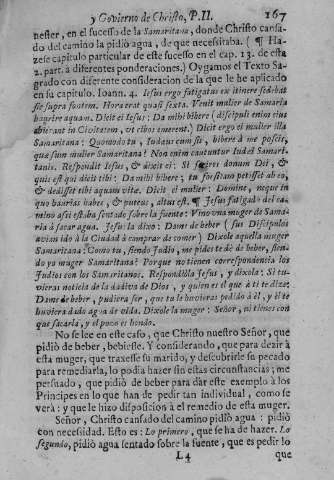 y Govierno de Christo, P. II. 167
nester, en el sucesso de la Samaritana, donde Christo cansa-
do del camino la pidiò agua, de que necesitaba. ( ¶ Ha-
zese capitulo particular de este sucesso en el cap. 13. de esta
2. part. à diferentes ponderaciones. ) Oygamos el Texto Sa-
grado con diferente consideracion de la que le he aplicado
en su capitulo. Ioann. 4. Iesus ergo fatigatus ex itinere sedebat
sic supra fontem. Hora erat quasi sexta. Venit mulier de Samaria
haurire aquam. Dicit ei Iesus: Da mihi bibere ( discipuli enim eius
abierant in Civitatem, vt cibos emerent.) Dicit ergo ei mulier illa
Samaritana: Quomodo tu, Iudæus cum sis, bibere à me poscis,
quæ sum mulier Samaritana? Non enim coutuntur Iudæi Samari-
tanis. Respondit Iesus, & dixit ei: Si scires donum Dei, &
quis est qui dicit tibi: Da mihi bibere, tu forsitan petisses ab eo,
& dedisset tibi aquam vivæ. Dicit ei mulier: Domine, neque in
quo haurias habes, & puteus, altus est. ¶ Jesus fatigado del ca-
mino assi estaba sentado sobre la fuente: Vino vna muger de Sama-
ria à sacar agua. Jesus la dixo: Dame de beber ( sus Discipulos
avian ido à la Ciudad à comprar de comer ) Dixole aquella muger
Samaritana: Como tu, siendo Judio, me pides te dè de beber, sien-
do yo muger Samaritana? Porque no tienen correspondencia los
Judios con los Samaritanos. Respondiòla Jesus, y dixola: Si tu-
vieras noticia de la dadiva de Dios, y quien es el que à ti te dize:
Dame de beber, pudiera ser, que tu le huvieras pedido à èl, y èl te
huviera dado agua de vida. Dixole la muger: Señor, ni tienes con
que sacarla, y el poço es hondo.
No se lee en este caso, que Christo nuestro Señor, que
pidiò de beber, bebiesse. Y considerando, que para dezir à
esta muger, que traxesse su marido, y descubrirle su pecado
para remediarla, lo podia hazer sin estas circunstancias; me
persuado, que pidiò de beber para dar este exemplo à los
Principes en lo que han de pedir tan individual, como se
verà: y que le hizo disposicion à el remedio de esta muger.
Señor, Christo cansado del camino pidiò agua: pidiò
con necessidad. Esto es: Lo primero, que se ha de hazer. Lo
segundo, pidiò agua sentado sobre la fuente, que es pedir lo
L4 que